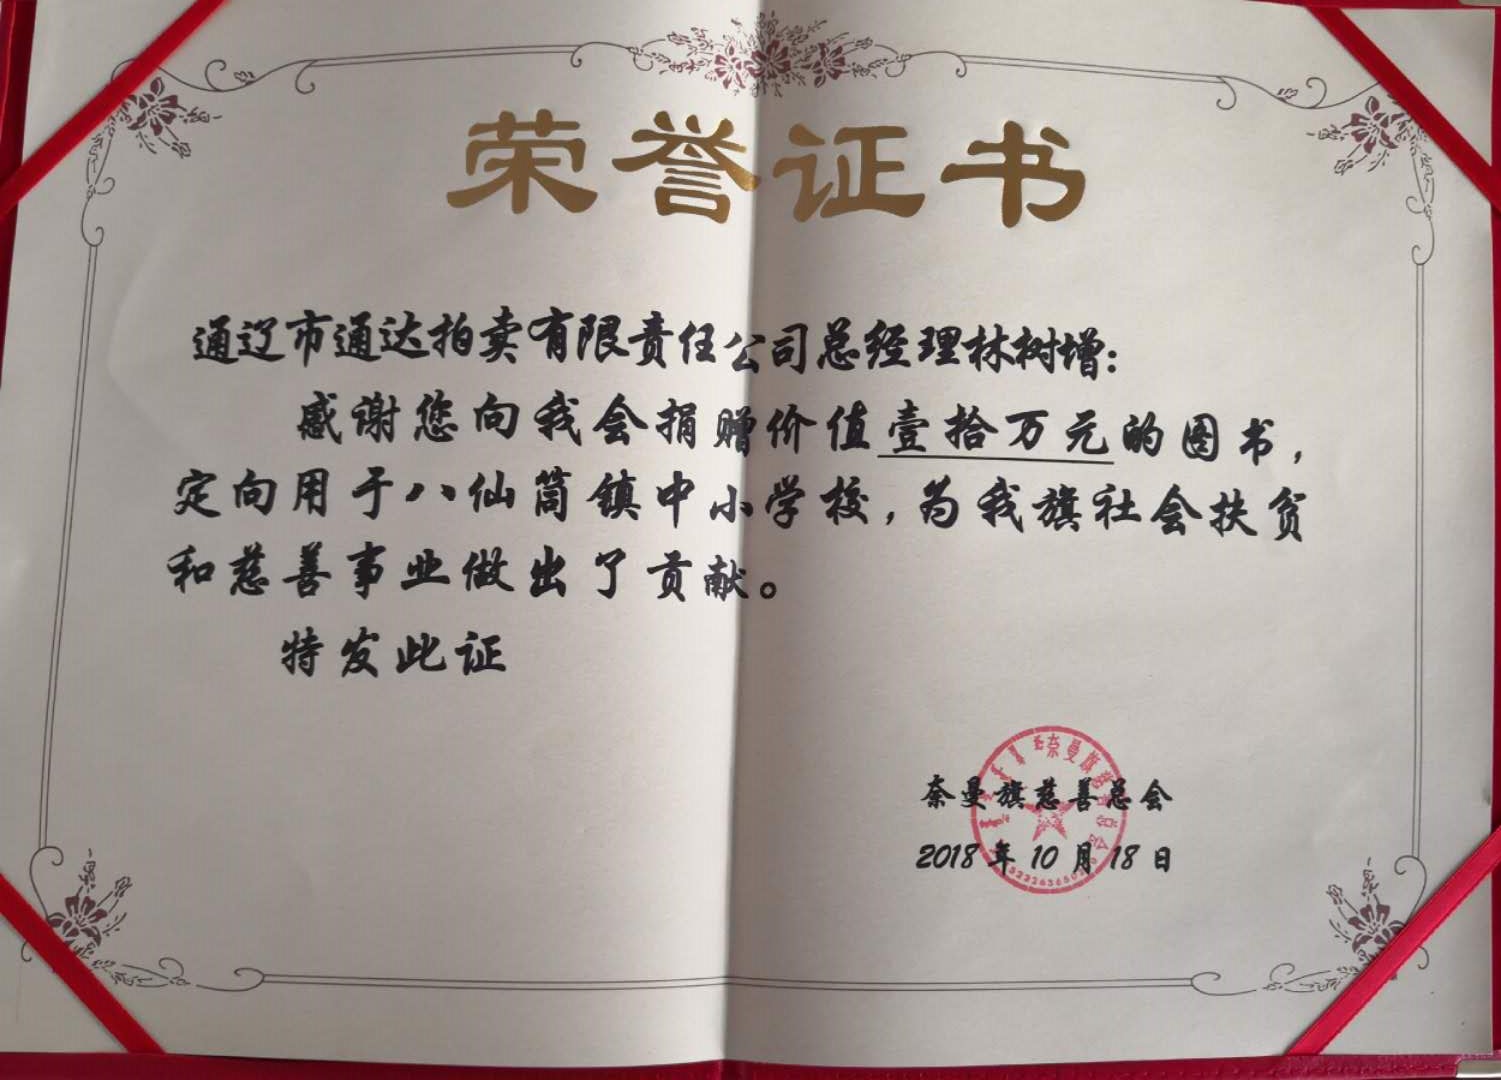 荣誉证书
通辽市通达拍卖有限责任公司总经理林树增:
感谢您向我会捐赠价值壹拾万元的图书,
定向用于八仙筒镇中小学校,为我旗社会扶贫
和慈善事业做出了贡献。
特发此证
奈曼旗慈善总会
2018年10月18日